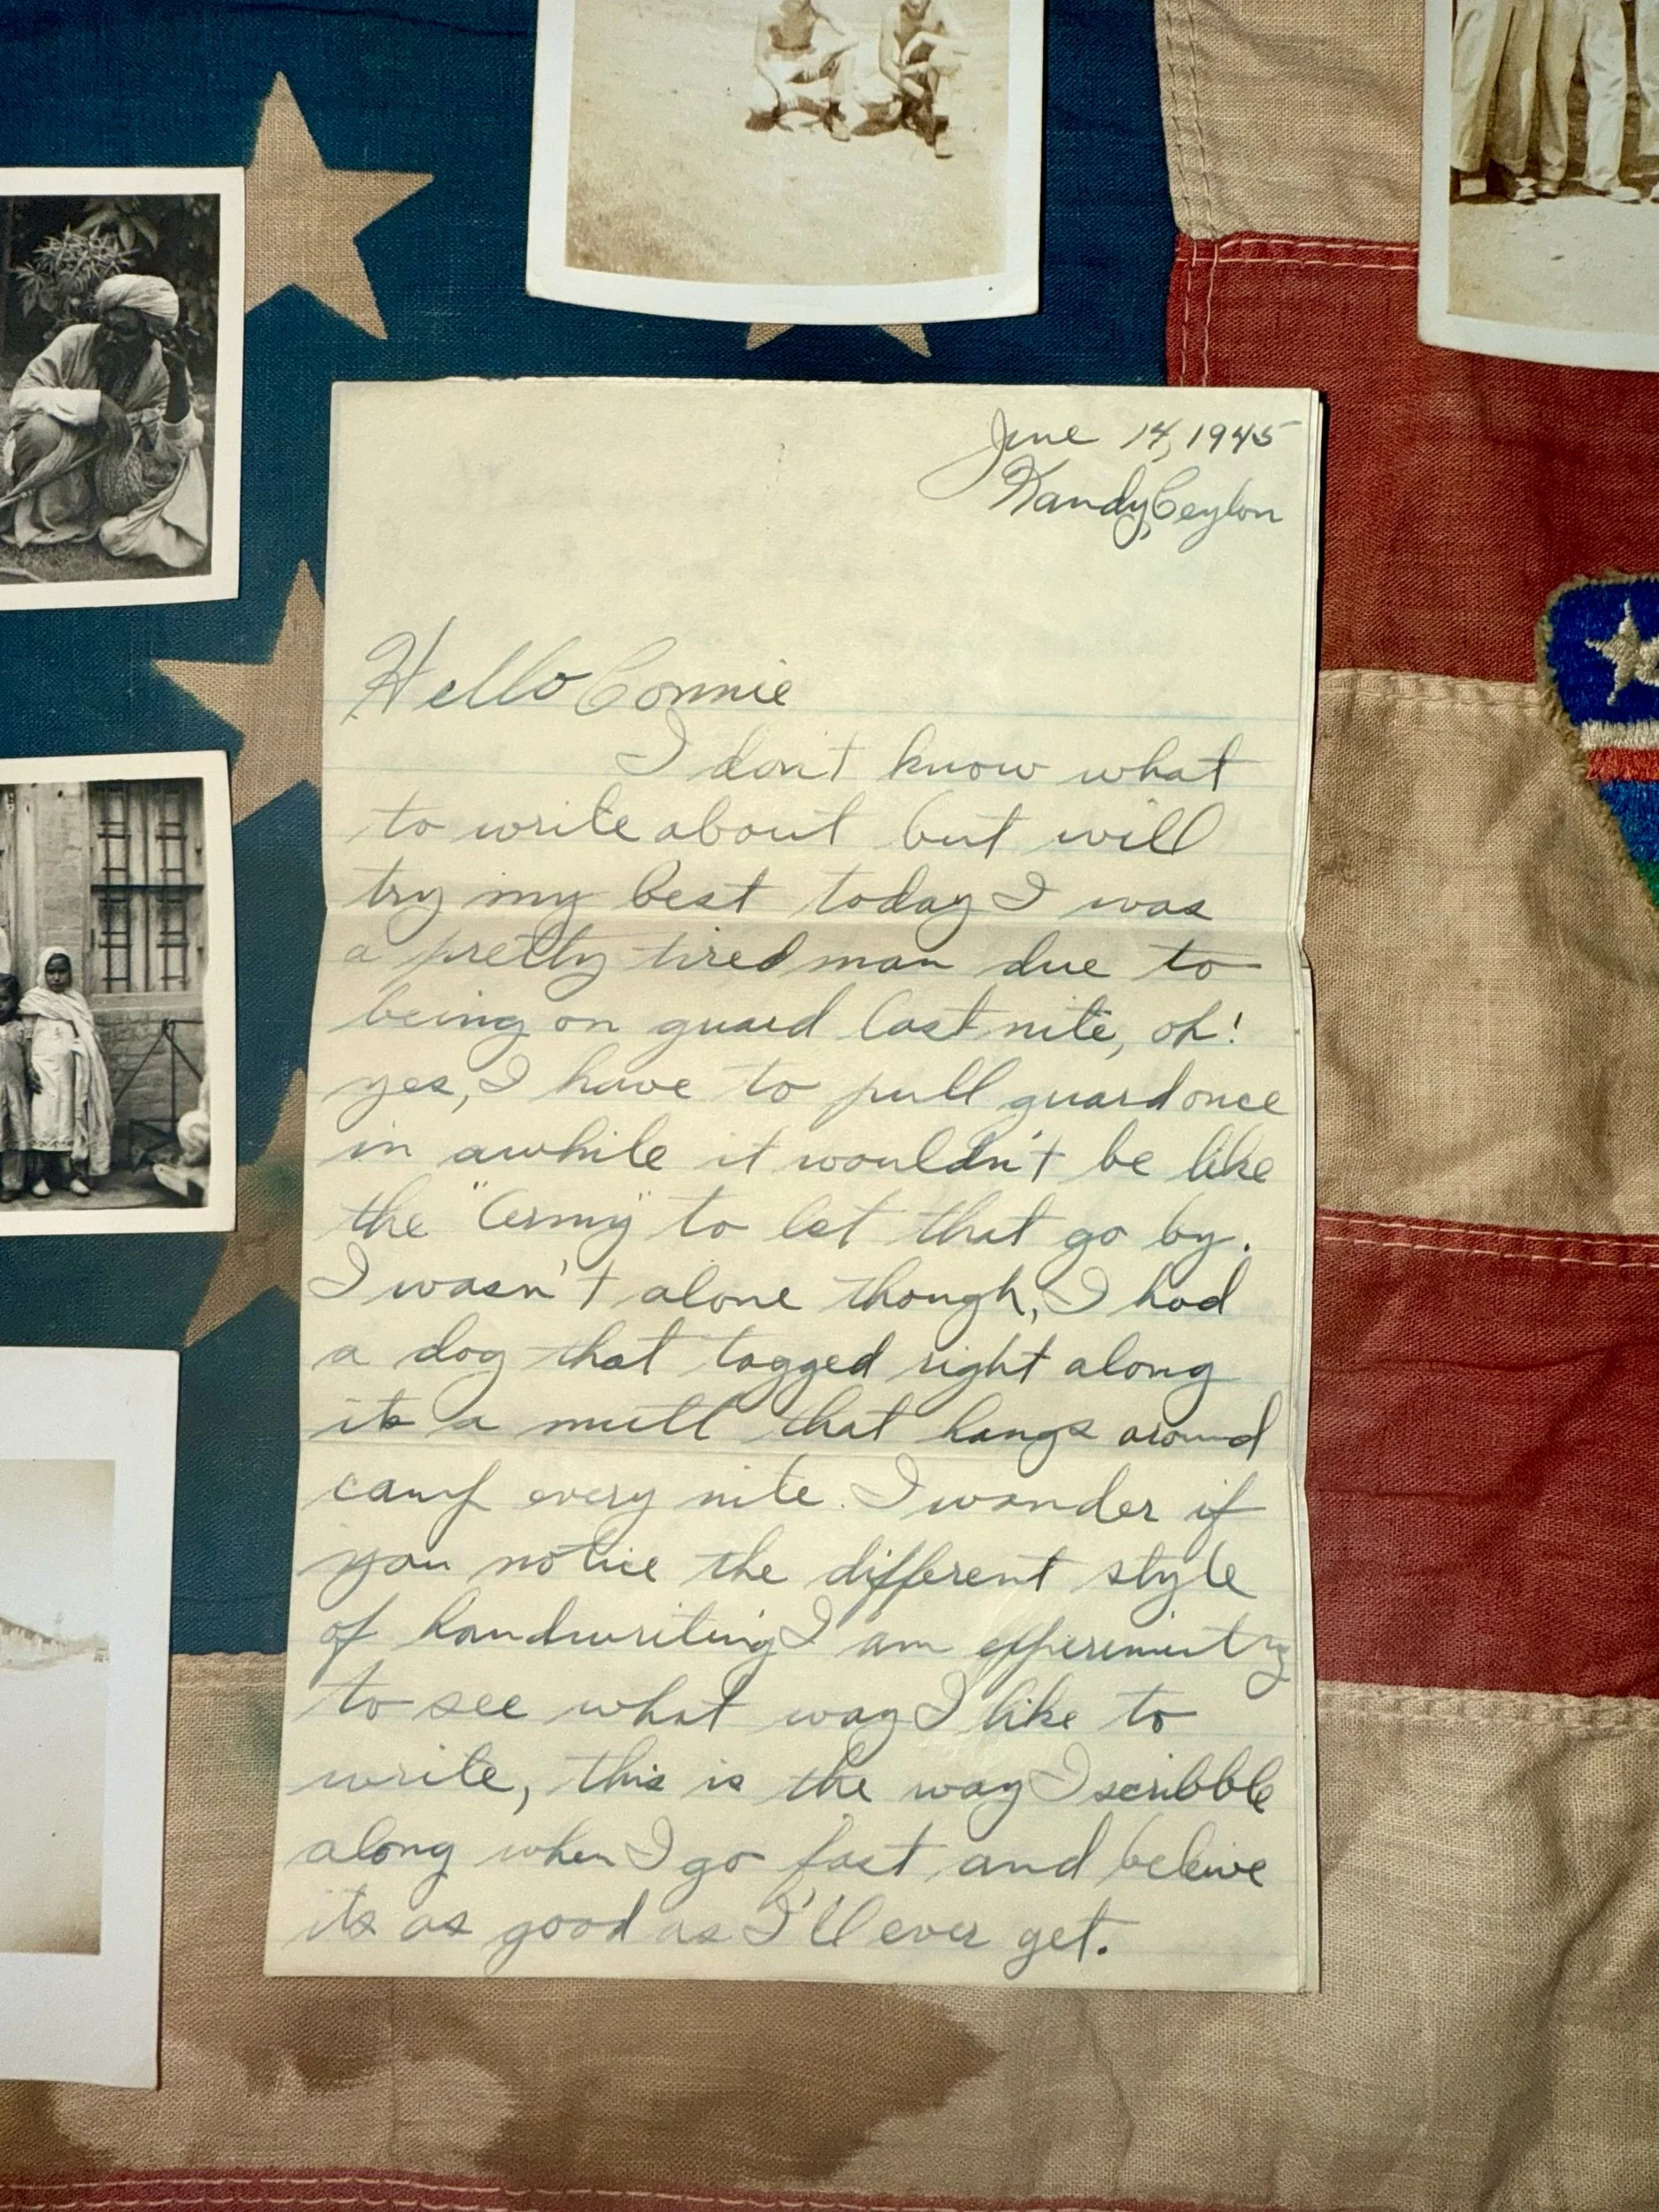 June 14, 1945
Kandy, Ceylon
Hello Connie
I don't know what
to write about but will
try my best today I was
a pretty tired man due to
being on guard last nite, oh!
yes, I have to pull guard once
in awhile it wouldn't be like
the "Army" to let that go by.
I wasn't alone though, I had
a dog that tagged right along
its a mutt that hangs around
camp every nite. I wonder if
you notice the different style
of handwriting I am
to see what way I like to
write, this is the way I scribble
along when I go fast and beleive
its as good as I'll ever get.